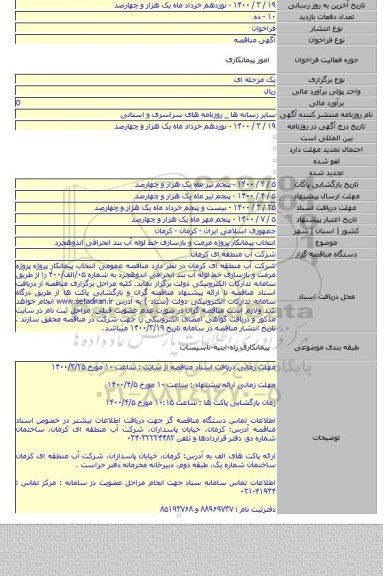 تاریخ آخرین به روز رسانی
۱۹ / ۳ / ۱۴۰۰ - نوزدهم خرداد ماه یک هزار و چهارصد
تعداد دفعات بازدید
۱۰ - ده
نوع انتشار
فراخوان
نوع فراخوان
آگهی مناقصه
حوزه فعالیت فراخوان
امور پیمانکاری
نوع برگزاری
یک مرحله ای
واحد پولی برآورد مالی
ریال
برآورد مالی
0
نام روزنامه منتشر کننده آگهی
سایر رسانه ها _ روزنامه های سراسری و استانی
تاریخ درج آگهی در روزنامه
۱۹ / ۳ / ۱۴۰۰ - نوزدهم خرداد ماه یک هزار و چهارصد
بین المللی است
احتمال تمدید مهلت دارد
لغو شده
تجدید شده
تاریخ بازگشایی پاکات
۵ / ۴ / ۱۴۰۰ - پنجم تیر ماه یک هزار و چهارصد
مهلت ارسال پیشنهاد
۵ / ۴ / ۱۴۰۰ - پنجم تیر ماه یک هزار و چهارصد
مهلت دریافت اسناد
۲۵ / ۳ / ۱۴۰۰ - بیست و پنجم خرداد ماه یک هزار و چهارصد
تاریخ اعتبار پیشنهاد
۵ / ۷ / ۱۴۰۰ - پنجم مهر ماه یک هزار و چهارصد
کشور | استان | شهر
جمهوری اسلامی ایران - کرمان - کرمان
موضوع
انتخاب پیمانکار پروژه مرمت و بازسازی خط لوله آب بند انحرافی اندوهجرد
دستگاه مناقصه گزار
شرکت آب منطقه ای کرمان
محل دریافت اسناد
شرکت آب منطقه ای کرمان در نظر دارد مناقصه عمومی انتخاب پیمانکار پروژه پروژه
مرمت و بازسازی خط لوله آب بند انحرافی اندوهجرد به شماره ۰۵/الف/۴۰۰ را از طریق
سامانه تدارکات الکترونیکی دولت برگزار نماید. کلیه مراحل برگزاری مناقصه از دریافت
اسناد مناقصه تا ارائه پیشنهاد مناقصه گران و بازگشایی پاکت ها از طریق درگاه
سامانه تدارکات الکترونیکی دولت (ستاد ) به آدرس www.setadiran.ir انجام خواهد
شد ولازم است مناقصه گران در صورت عدم عضویت قبلی، مراحل ثبت نام در سایت
مذکور و دریافت گواهی امضای الکترونیکی را جهت شرکت در مناقصه محقق سازند .
تاریخ انتشار مناقصه در سامانه تاریخ ۱۴۰۰/۳/۱۹ میباشد.
طبقه بندی موضوعی
پیمانکاری-راه-ابنیه-تاسیسات
توضیحات
مهلت زمانی دریافت اسناد مناقصه از سایت : ساعت ۱۰ مورخ ۱۴۰۰/۳/۲۵
مهلت زمانی ارائه پیشنهاد : ساعت ۱۰ مورخ ۱۴۰۰/۴/۵
زمان بازگشایی پاکت ها : ساعت ۱۰:۱۵ مورخ ۱۴۰۰/۴/۵
اطلاعات تماس دستگاه مناقصه گر جهت دریافت اطلاعات بیشتر در خصوص اسناد
مناقصه آدرس: کرمان، خیابان پاسداران، شرکت آب منطقه ای کرمان، ساختمان
شماره دو، دفتر قراردادها و تلفن
ارائه پاکت های الف به آدرس: کرمان، خیابان پاسداران، شرکت آب منطقه ای کرمان
ساختمان شماره یک، طبقه دوم، دبیرخانه محرمانه دفتر حراست .
اطلاعات تماس سامانه ستاد جهت انجام مراحل عضویت در سامانه : مرکز تماس :
۰۲۱-۴۱۹۳۴
دفترثبت نام : ۸۸۹۶۹۷۳۷ و ۸۵۱۹۳۷۶۸